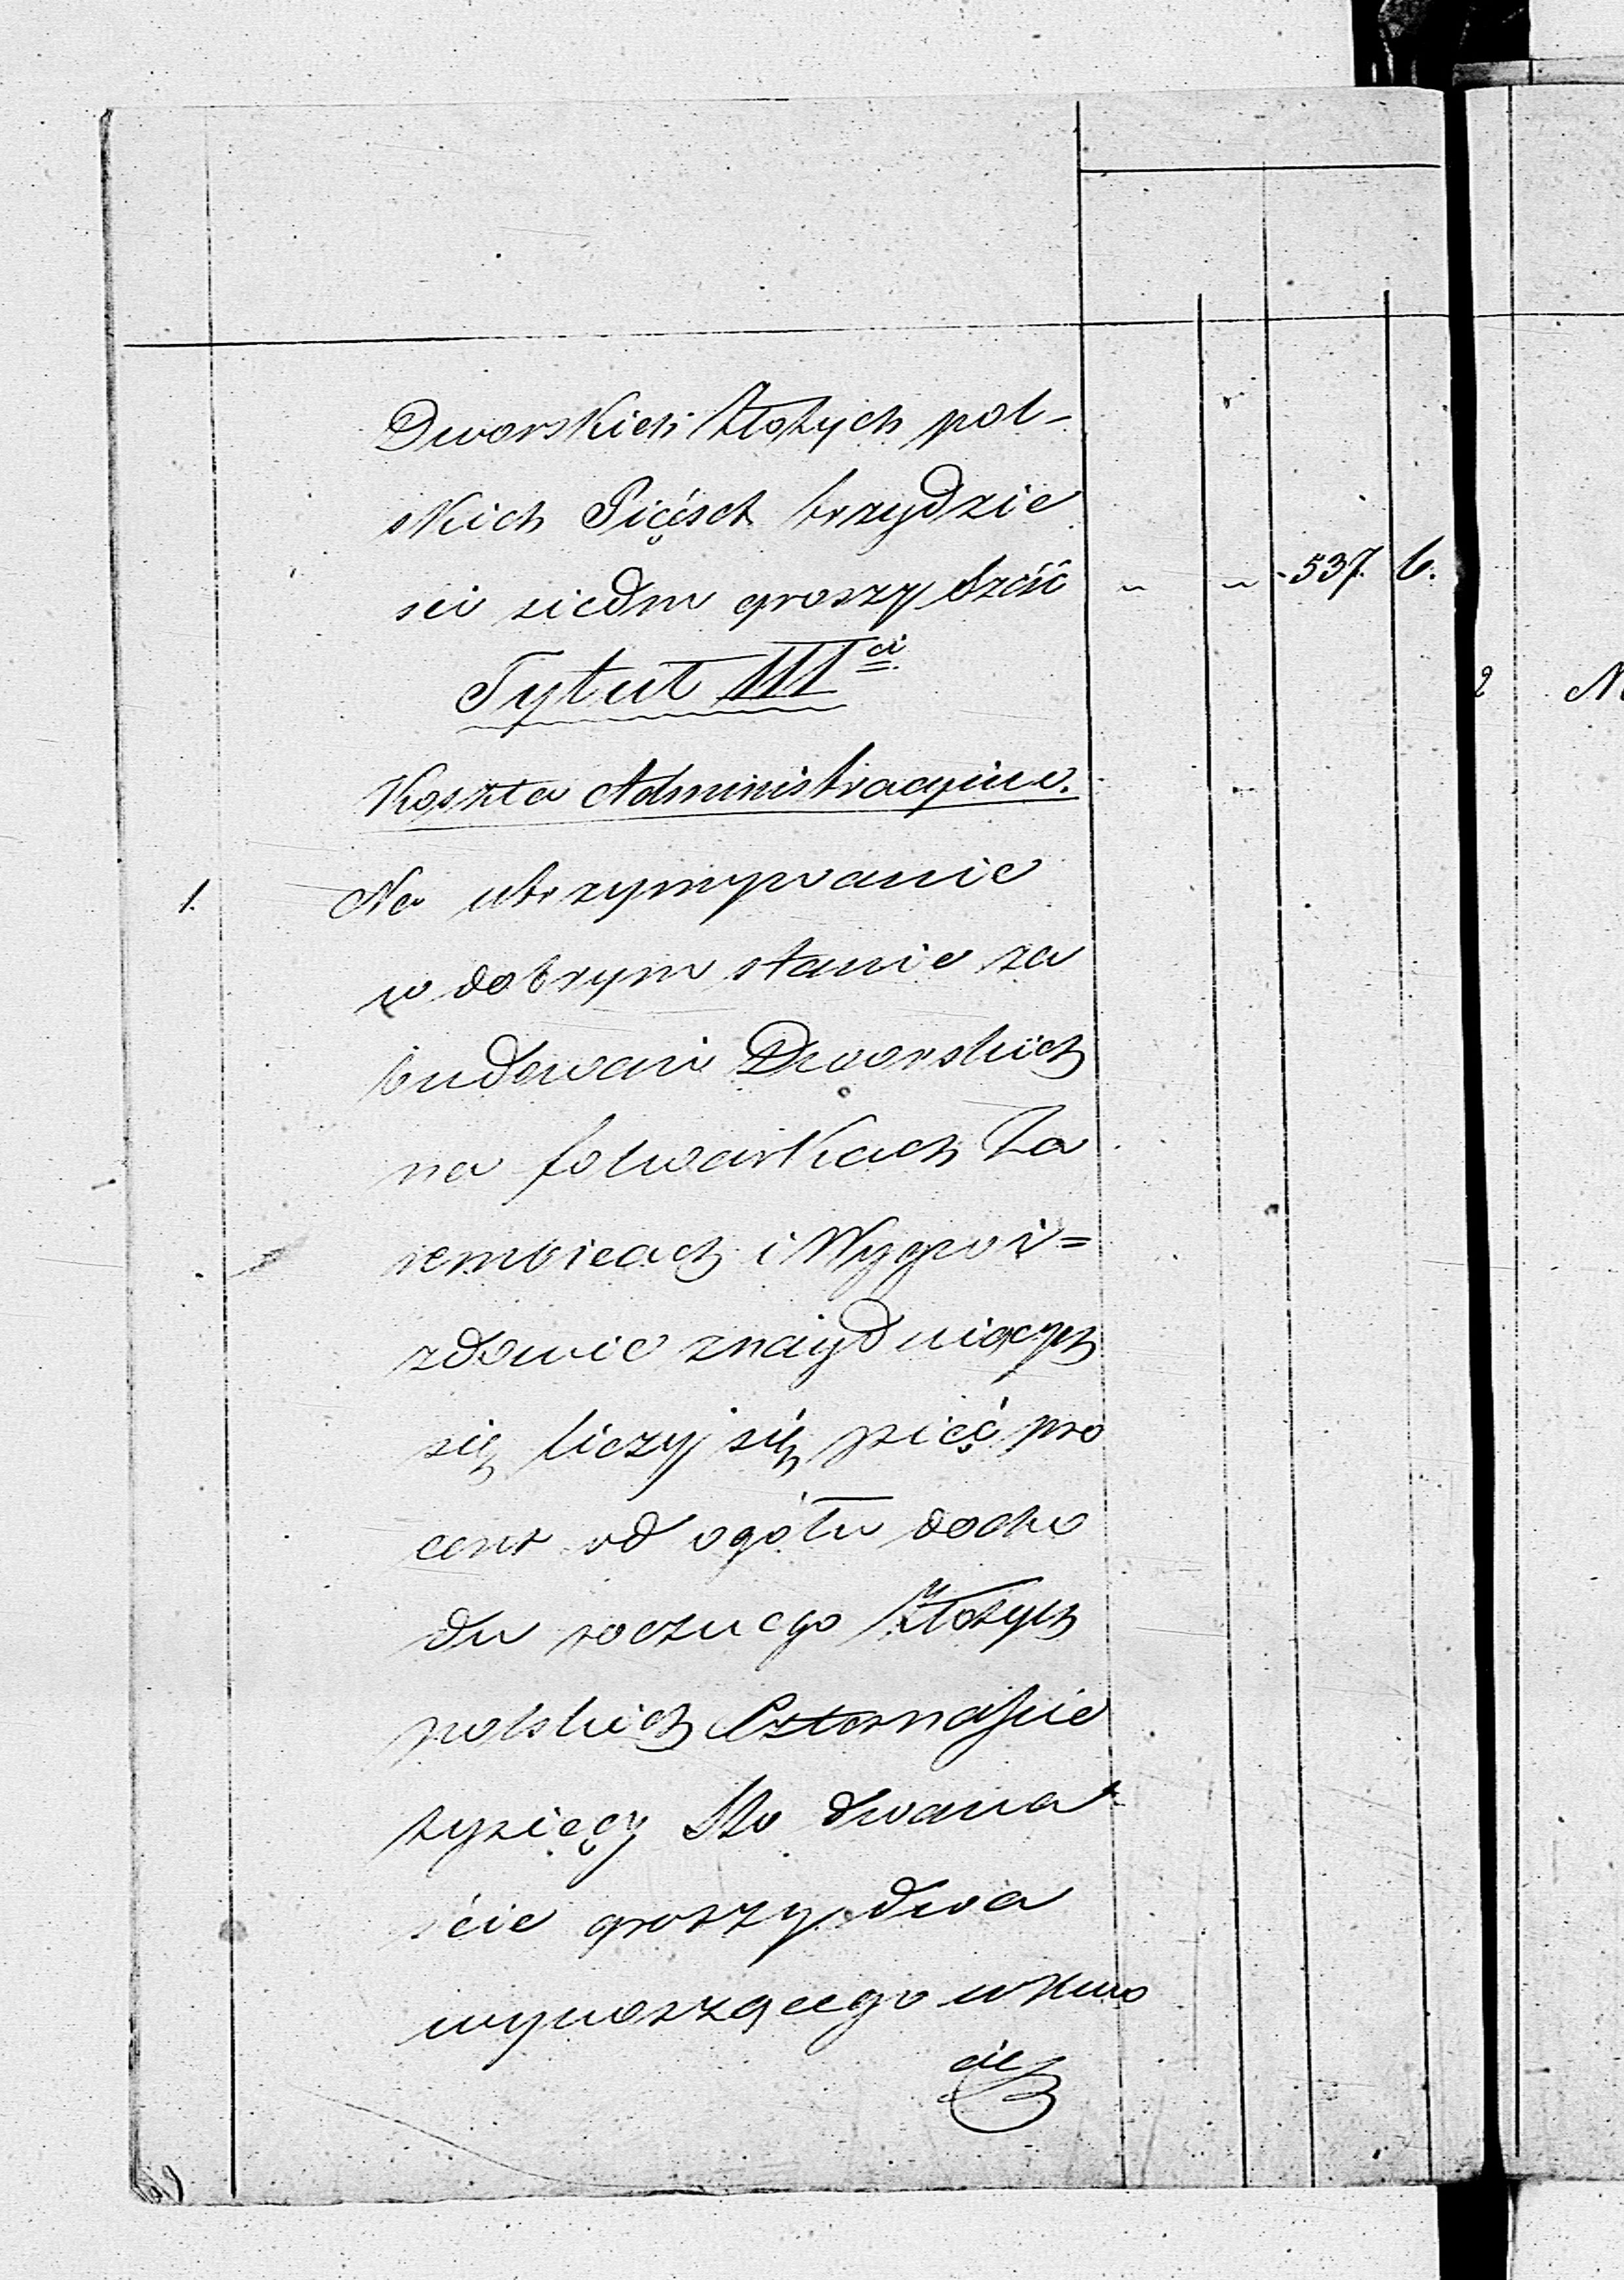 Dworskich Złotych pol-
skich Pięćset trzydzie
sci siedm groszy sześć ~ ~ 537. 6.
Tytuł III ci
Koszta Administracyine.
1. Na utrzymywanie
w dobrym stanie za
budowań Dworskich
na folwarkach Za
rembicach i Wygwi=
zdowie znayduiących
się liczy się pięć pro
cent od ogółu docho
du rocznego Złotych
polskich Czternaście
tysięcy Sto dwana
ście groszy dwa
wynoszącego w kwo
cie
2 N